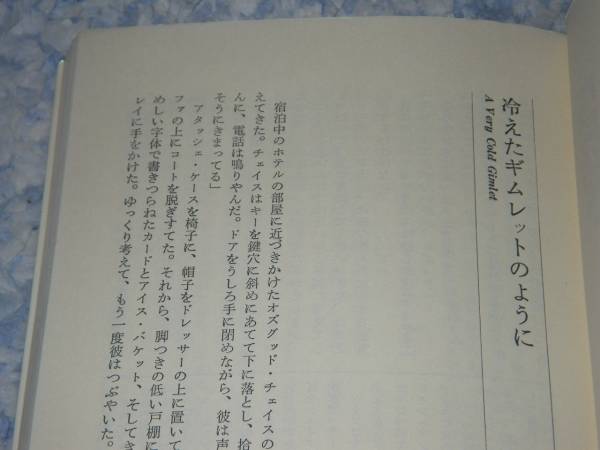 冷えたギムレットのように
A Very Cold Gimlet
宿泊中のホテルの部屋に近づきかけたオズグッド・チェイスの
えてきた。チェイスはキーを鍵穴に斜めにあてて下に落とし、拾
んに、電話は鳴りやんだ。ドアをうしろ手に閉めながら、彼は声
そうにきまってる」
アタッシェ・ケースを椅子に、帽子をドレッサーの上に置いて
ファの上にコートを脱ぎすてた。それから、脚つきの低い戸棚に
めしい字体で書きつらねたカードとアイス・バケット、そしてき
レイに手をかけた。ゆっくり考えて、もう一度彼はつぶやいた。